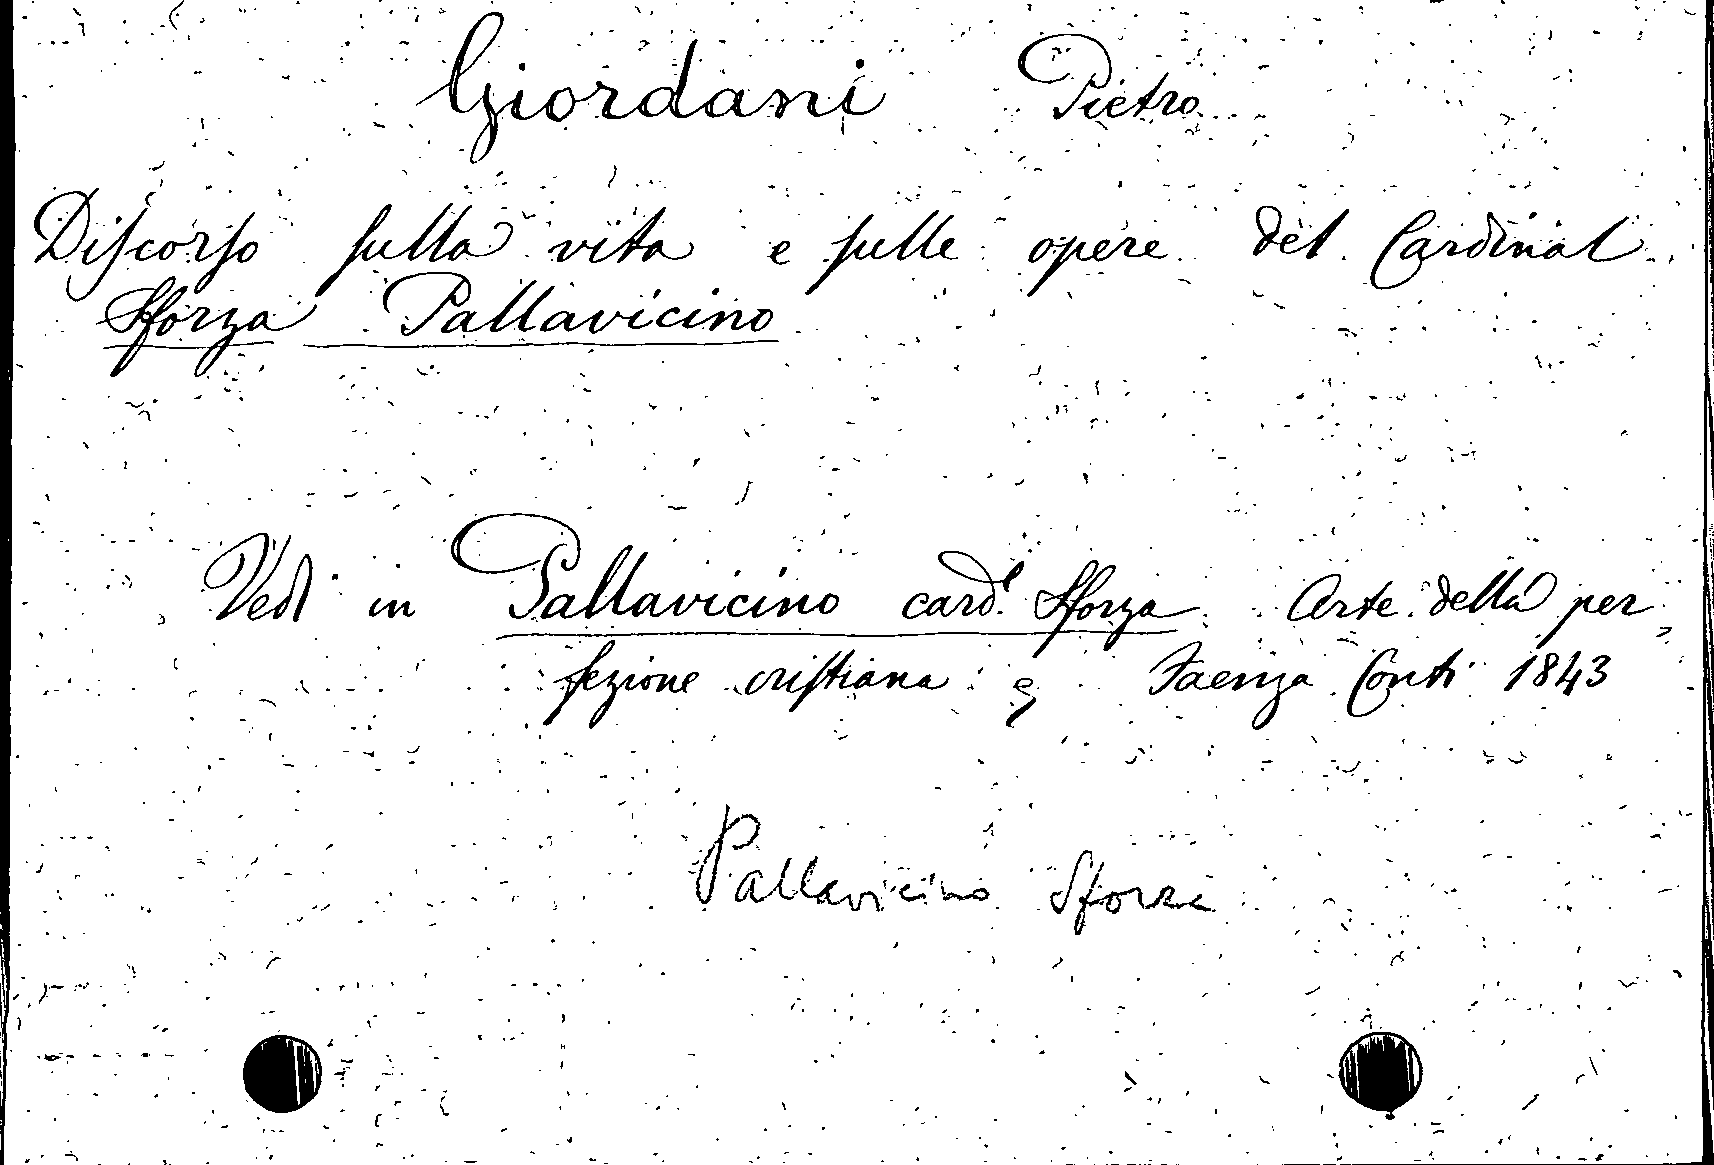 Giordani Pietro
Discorso sulla vita e sulle opere del Cardinal
Sforza Pallavicino
Vedi in Pallavicino card.l Sforza Arte della per
fezione cristiana Faenza Conti 1843
Pallavicino Sforza